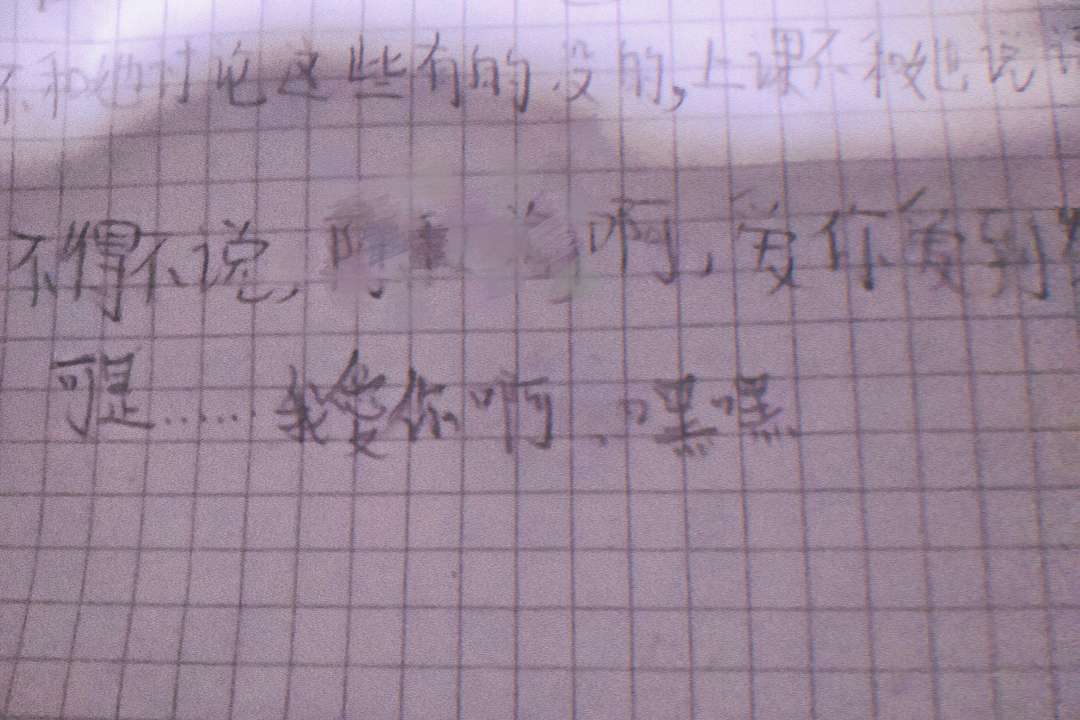 不和她讨论这些有的没的,上课不和她说话
不得不说, 啊,爱你爱到
可是……我爱你啊、嘿嘿